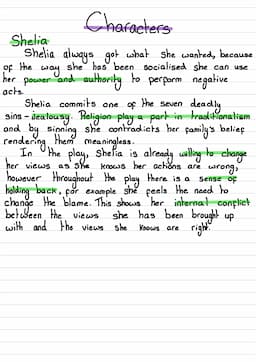 Characters
Shelia
Shelia always got what she wanted, because
of the way she has been socialised she can use
her power and authority to perform negative
acts.
Shelia commits one of the seven deadly
sins - Jealousy. Religion play a part in traditionalism
and by sinning she contradicts her family's belief
rendering them meaningless.
In the play, Shelia is already willing to change
her views as she knows her actions are wrong,
however throughout the play there is a sense of
holding back, for example she feels the need to
change the blame. This shows her internal conflict
between the views she has been brought up
with and the views she knows are right.